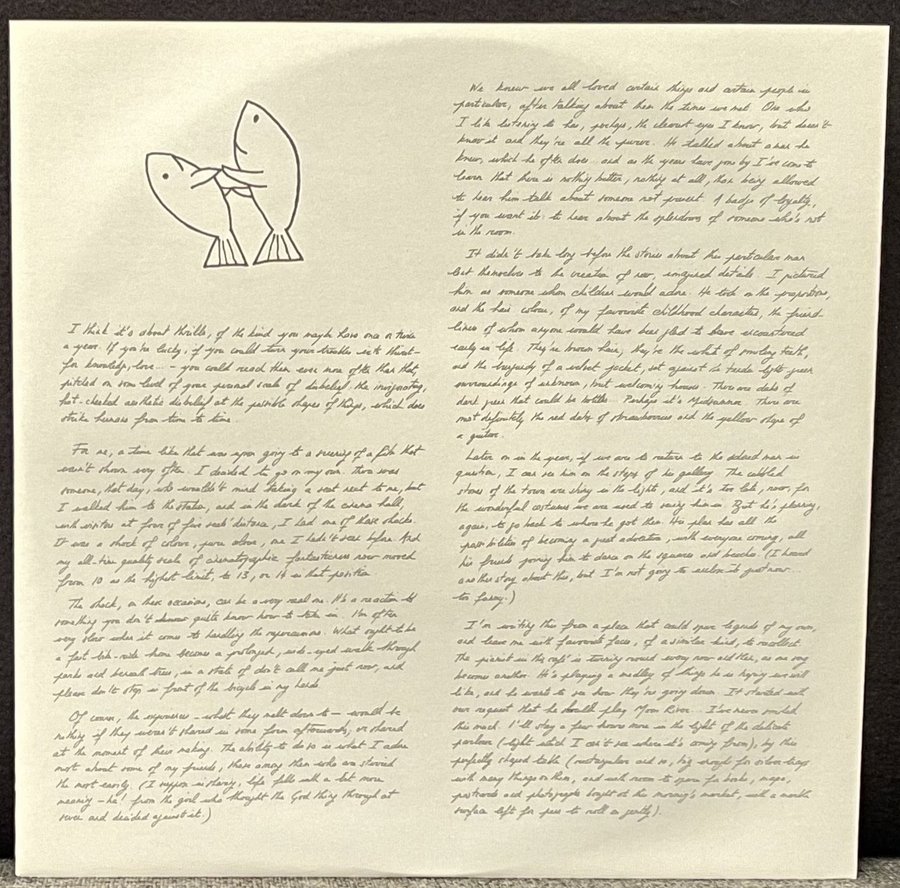 I think it's about thrills, of the kind you maybe have once or twice
a year. If you're lucky, if you could turn your troubles into thirst –
for knowledge, love... – you could reach them even more often than that,
pitched on some level of your personal scale of disbelief: the invigorating,
hot-cheeked aesthetic disbelief at the possible shapes of things, which does
strike humans from time to time.
For me, a time like that was upon going to a screening of a film that
wasn't shown very often. I decided to go on my own. There was
someone, that day, who wouldn't mind taking a seat next to me, but
I walked him to the station, and in the dark of the cinema hall,
with visitors at four or five seats' distance, I had one of those shocks.
It was a shock of colour, pure alive, one I hadn't seen before. And
my all-time quality scale of cinematographic fantasticness now moved
from 10 as the highest limit, to 13, or 14 in that position.
The shock, on these occasions, can be a very real one. It's a reaction to
something you don't quite know how to take in. I'm often
very slow when it comes to handling the repercussions. What ought to be
a fast bike-ride home becomes a prolonged, wide-eyed walk through
parks and boreal trees, in a state of don't call me just now, and
please don't stop in front of the bicycle in my hands.
Of course, the experiences – what they melt down to – would be
nothing if they weren't shared in some form afterwards, or shared
at the moment of their making. The ability to do so is what I adore
most about some of my friends, those among them who are starved
the most easily. (I suppose in sharing, life falls with a bit more
meaning – ha! from the girl who thought the God thing through at
seven and decided against it.)
We knew we all loved certain things and certain people in
particular, after talking about them the times we met. One who
I like listening to has, perhaps, the clearest eyes I know, but doesn't
know it and they're all the purer. He talked about a man he
knew, which he often does.. and as the years have gone by I've come to
learn that there is nothing better, nothing at all, than being allowed
to hear him talk about someone not present. A badge of loyalty,
if you want it: to hear about the splendours of someone who's not
in the room.
It didn't take long before the stories about this particular man
lent themselves to the creation of new, imagined details. I pictured
him as someone whom children would adore. He took on the proportions,
and the hair colour, of my favourite childhood characters, the friend-
liness of whom anyone would have been glad to have encountered
early in life. They're brown hair, they're the white of smiling teeth,
and the burgundy of a velvet jacket, set against a tender light green
surroundings of unknown, but welcoming houses. There are dabs of
dark green that could be bottles. Perhaps it's Midsummer. There are
most definitely the red dots of strawberries and the yellow shape of
a guitar.
Later on in the year, if we are to return to the adored man in
question, I can see him on the steps of his gallery. The cobbled
stones of the town are shiny in the lights, and it's too late, now, for
the wonderful costumes we are used to seeing him in. But he's planning,
again, to go back to where he got them. His plan has all the
possibilities of becoming a great adventure, with everyone coming, all
his friends joining him to dance on the squares and beaches. (I heard
another story about this, but I'm not going to enclose it just now...
too funny.)
I'm writing this from a place that could spare legends of my own,
and leave me with favourite faces, of a similar kind, to recollect.
The pianist in this café is turning round every now and then, as one song
becomes another. He's playing a medley of things he is hoping we will
like, and he wants to see how they're going down. It started with
our request that he should play Moon River... I've never smiled
this much. I'll stay a few hours more in the light of the delicate
parlour (light which I can't see where it's coming from), by this
perfectly shaped table (rectangular and so, big enough for silver trays
with many things on them, and with room to spare for books, maps,
postcards and photographs bought at this morning's market, with a marble
surface left for pens to roll on gently).